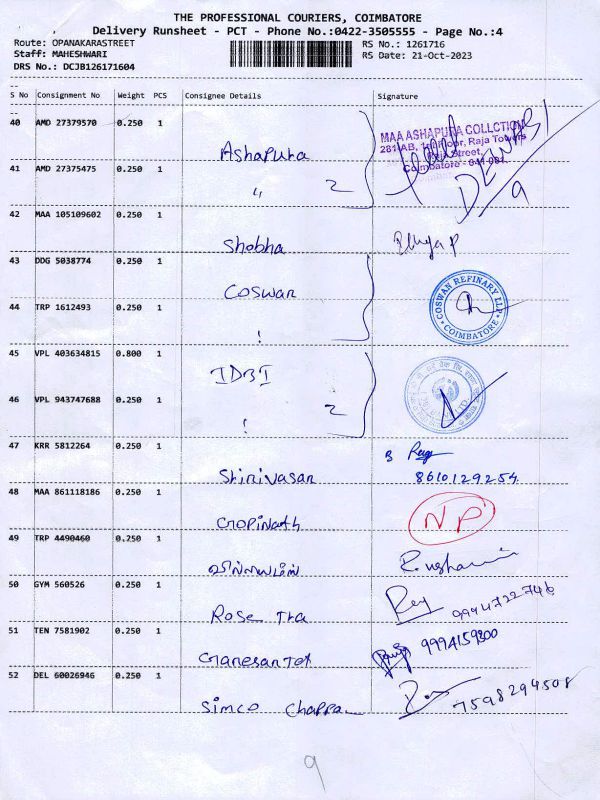 THE PROFESSIONAL COURIERS, COIMBATORE
Delivery Runsheet - PCT - Phone No.:0422-3505555 - Page No.:4
Route: OPANAKARASTREET
Staff: MAHESHWARI
DRS No.: DCJB126171604
RS No.: 1261716
RS Date: 21-Oct-2023
S No Consignment No Weight PCS Consignee Details Signature
40 AMD 27379570 0.250 1 Ashapura
MAA ASHAPURA COLLCTION
281-AB, 1st Floor, Raja Towers
Raja Street,
Coimbatore - 641 001.
9
41 AMD 27375475 0.250 1 " 2
42 MAA 105109602 0.250 1 Shobha
43 DDG 5038774 0.250 1 Coswan
COSWAN REFINARY LLP
COIMBATORE
44 TRP 1612493 0.250 1 !
45 VPL 403634815 0.800 1 IDBI
46 VPL 943747688 0.250 1 ! 2
47 KRR 5812264 0.250 1 Srinivasan 8610129254
48 MAA 861118186 0.250 1 Gopinath NP
49 TRP 4490460 0.250 1
50 GYM 560526 0.250 1 Rose Tra 9994722746
51 TEN 7581902 0.250 1 Ganesan Tex 9994159300
52 DEL 60026946 0.250 1 Simco Chappa 7598294508
9